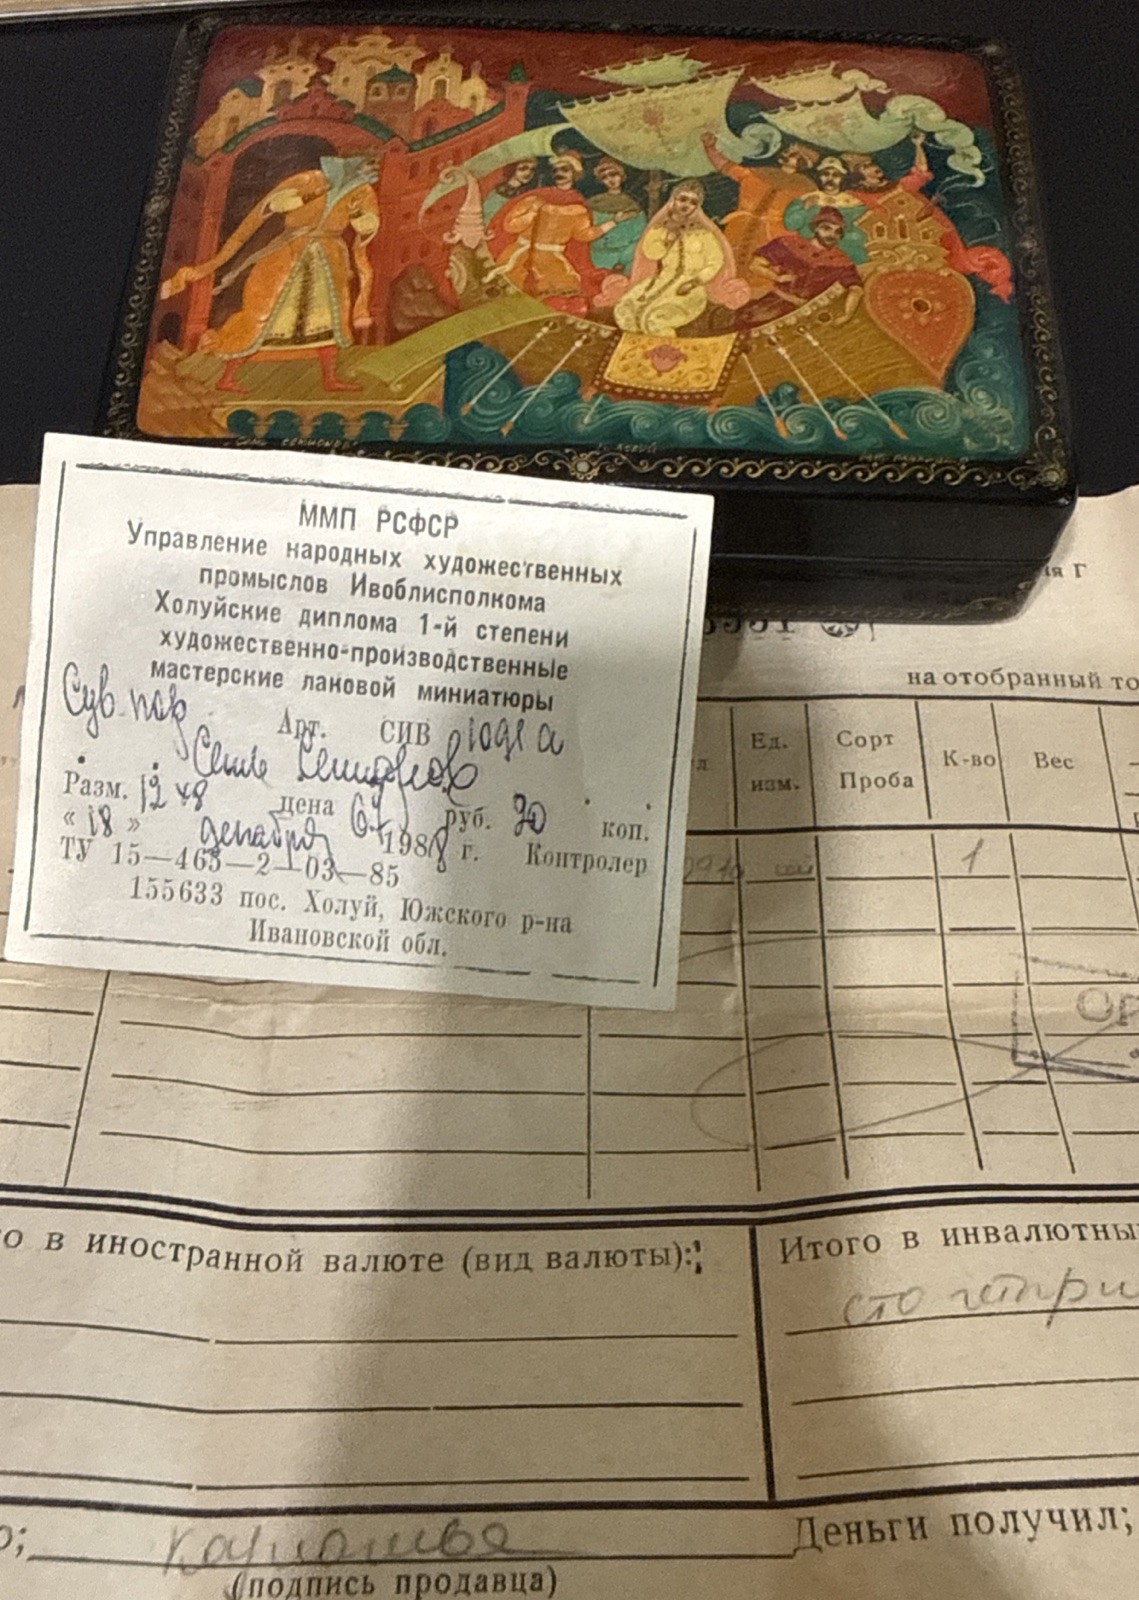 СЕМЬ СЕМИОНОВ
ХОЛУЙ
ММП РСФСР
Управление народных художественных
промыслов Ивоблисполкома
Холуйские диплома 1-й степени
художественно-производственные
мастерские лаковой миниатюры
Сув. пор
Арт. СИВ 1091 а
Семь Семионов
Разм. 12 х 8 цена 67 руб. 20 коп.
« 18 » декабря 1988 г. Контролер
ТУ 15—463—2—03—85
155633 пос. Холуй, Южского р-на
Ивановской обл.
на отобранный то
Ед. изм.
Сорт Проба
К-во
Вес
1
ОР
о в иностранной валюте (вид валюты):
Итого в инвалютны
сто четыри
о;
Деньги получил;
(подпись продавца)